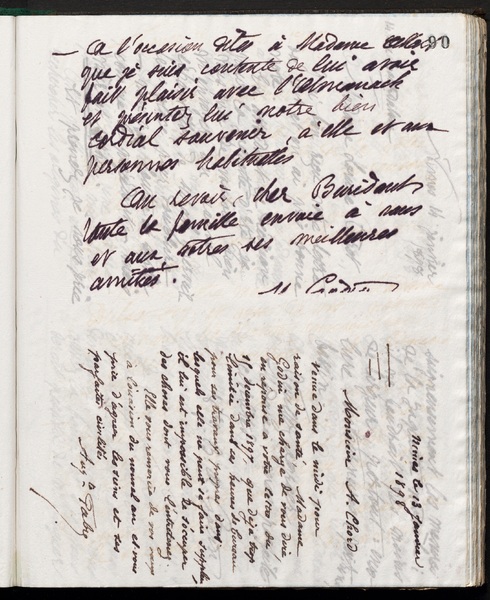 90
— A l'occasion dites à Madame
que je suis contente de lui avoir
fait plaisir avec l'Almanach
et présentez lui notre bien
cordial souvenir, à elle et aux
personnes habituées
Au revoir, cher Buridant
toute la famille envoie à vous
et aux vôtres ses meilleures
amitiés.
Nîmes le 13 Janvier
1898
Monsieur A. Chord
venue dans le midi pour
raison de santé, Madame
Godin me charge de vous dire
en réponse à votre lettre du
15 décembre 1897, que déjà trop
limitée dans ses heures de bureau
pour ses travaux propres, dans
lesquels elle ne peut se faire suppléer,
il lui est impossible de s'occuper
des choses dont vous l'entretenez.
Elle vous remercie de vos vœux
à l'occasion du nouvel an et vous
prie d'agréer les siens et ses
parfaites civilités
Aug. Fabre